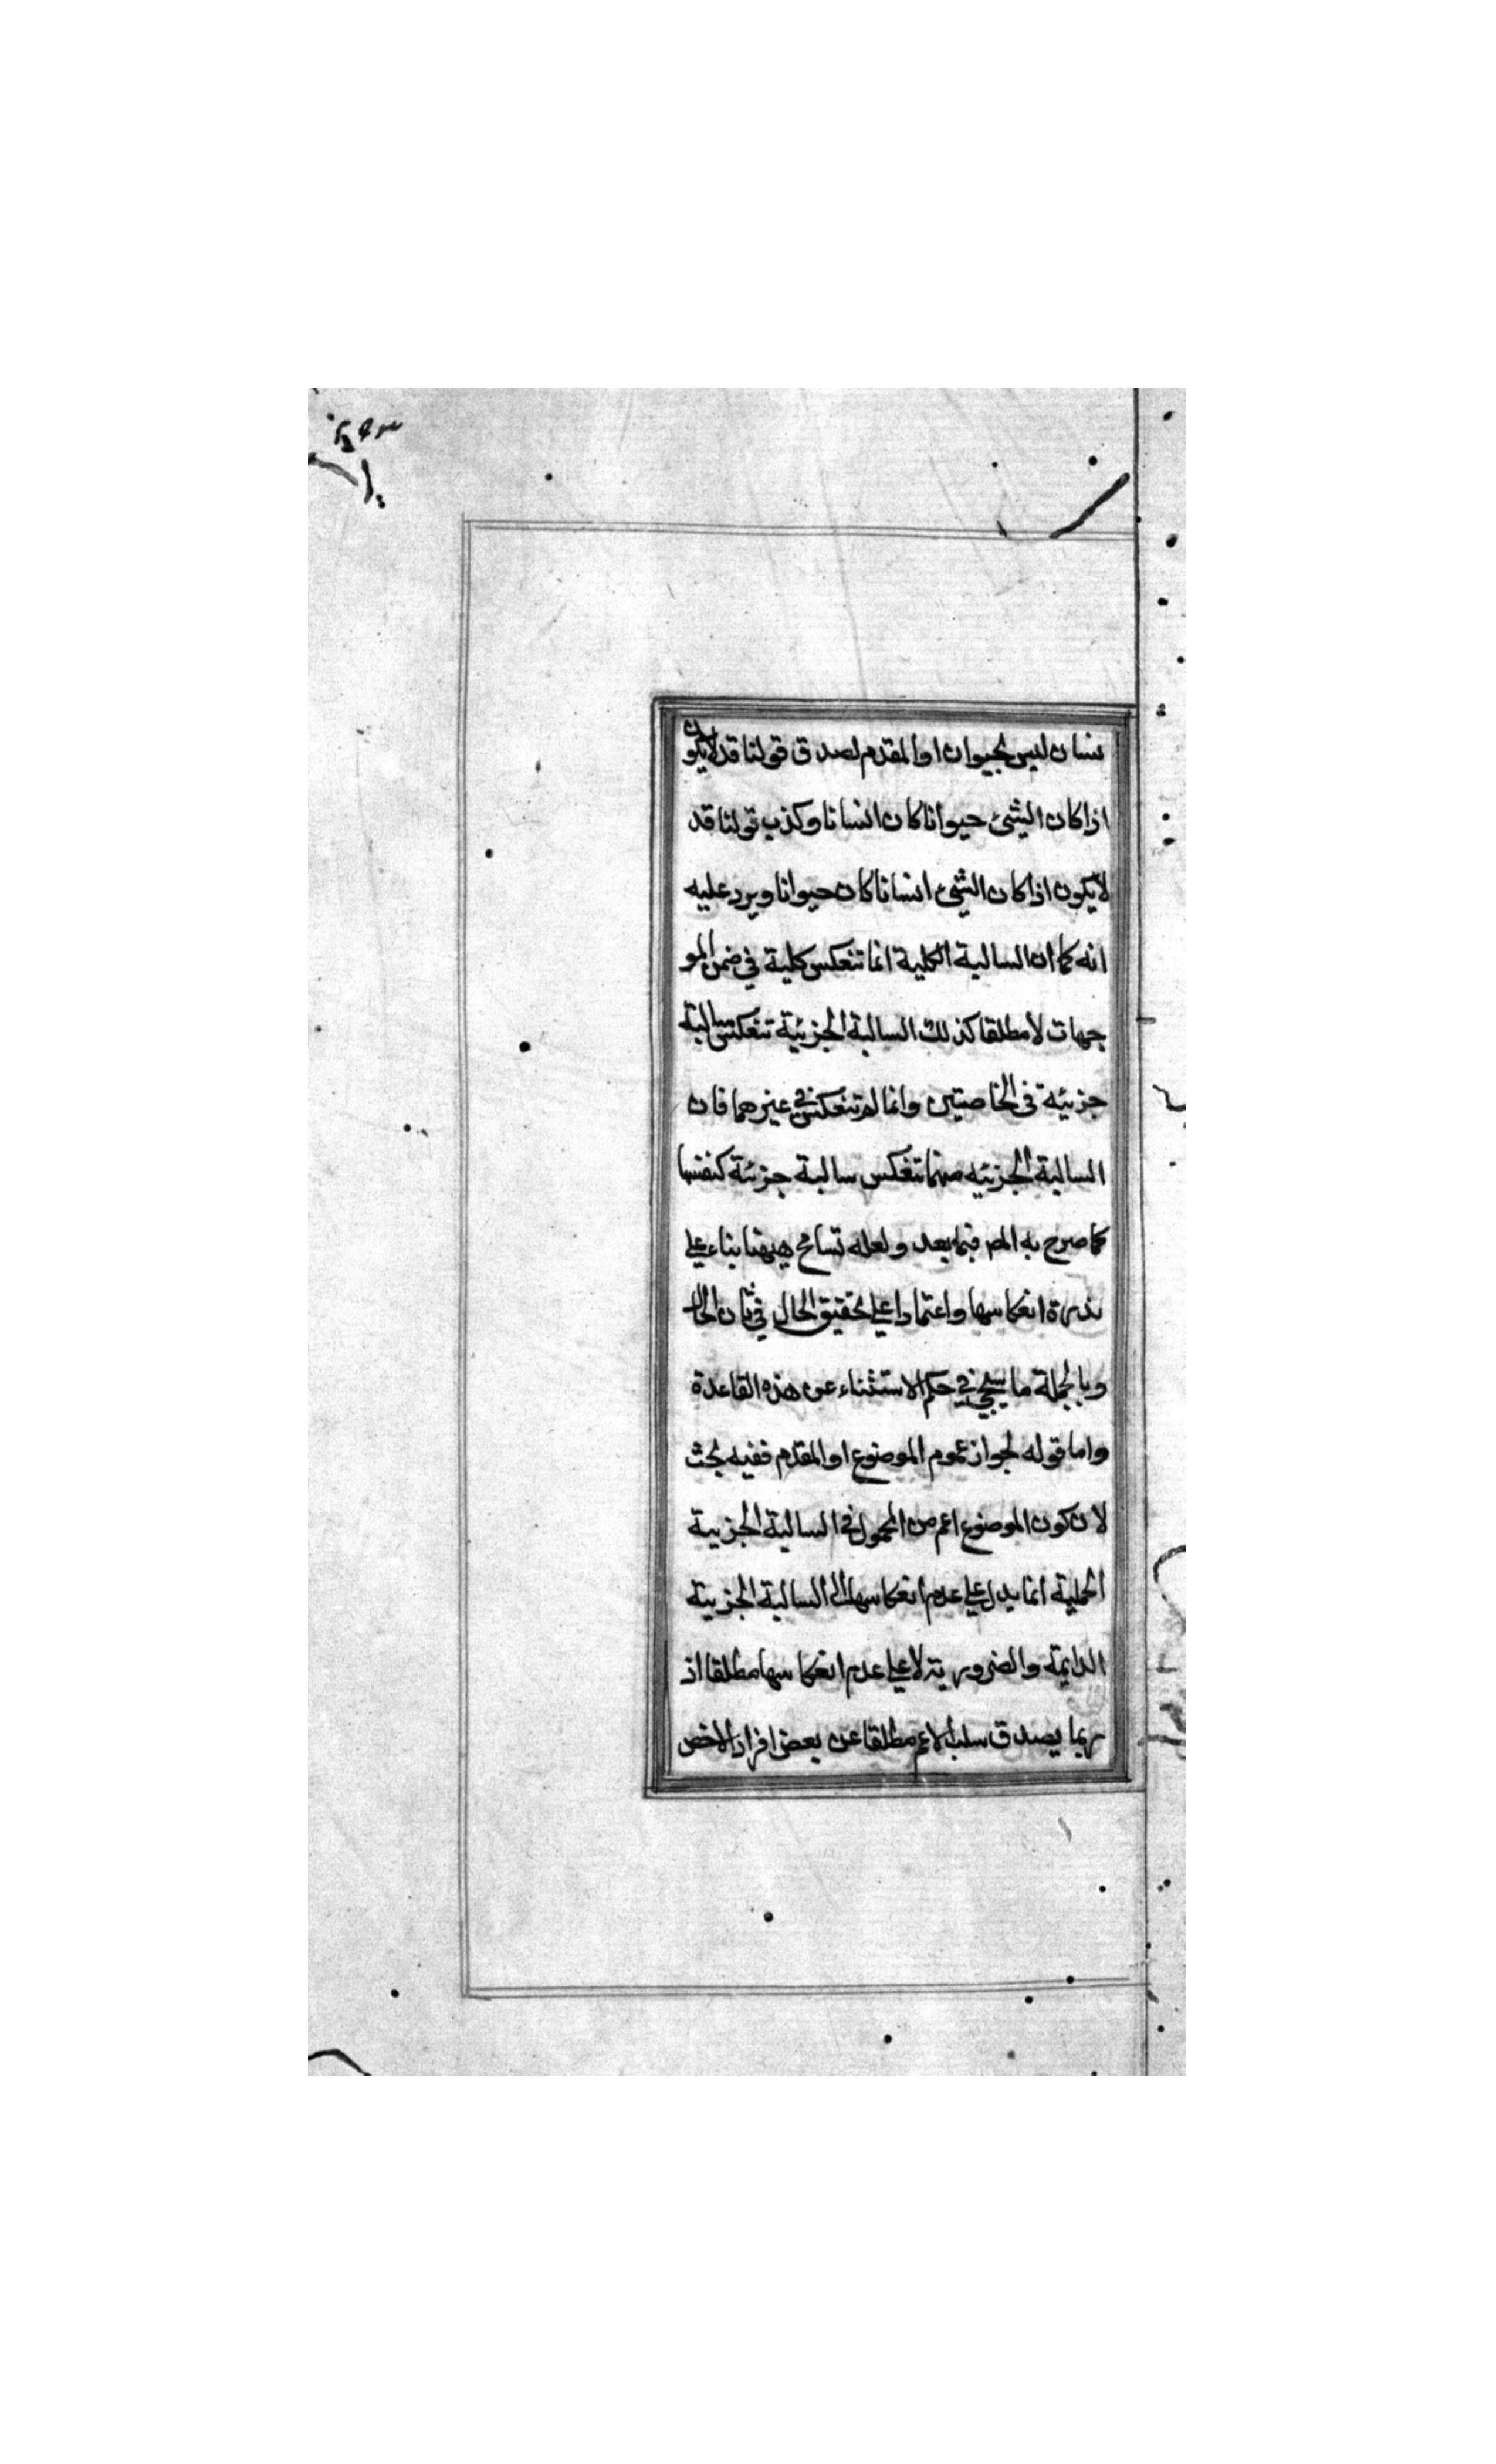 نسان ليس بحيوان او المقدم لصدق قولنا قد لايكون
اذا كان الشئ حيوانا كان انسانا وكذب قولنا قد
لايكون اذا كان الشئ انسانا كان حيوانا ويرد عليه
انه كما ان السالبة الكلية انما تنعكس كلية في ضمن المو
جهات لا مطلقا كذلك السالبة الجزئية تنعكس سالبة
جزئية في الخاصتين وانما لم تنعكس في غيرهما فان
السالبة الجزئيه منهما تنعكس سالبة جزئة كنفسها
كما صرح به المص فيما بعد ولعله تسامح ههنا بناء علي
ندرة انعكاسها واعتمادا علي تحقيق الحال في ثان الحال
وبالجملة ما سيجئ في حكم الاستثناء عن هذه القاعدة
واما قوله لجواز عموم الموضوع او المقدم ففيه بحث
لان كون الموضوع اعم من المحمول في السالبة الجزيية
الحملية انما يدل علي عدم انعكاسها الي السالبة الجزيية
الدايمة والضرورية لا علي عدم انعكاسها مطلقا اذ
ربما يصدق سلب الاعم مطلقا عن بعض افراد الاخص